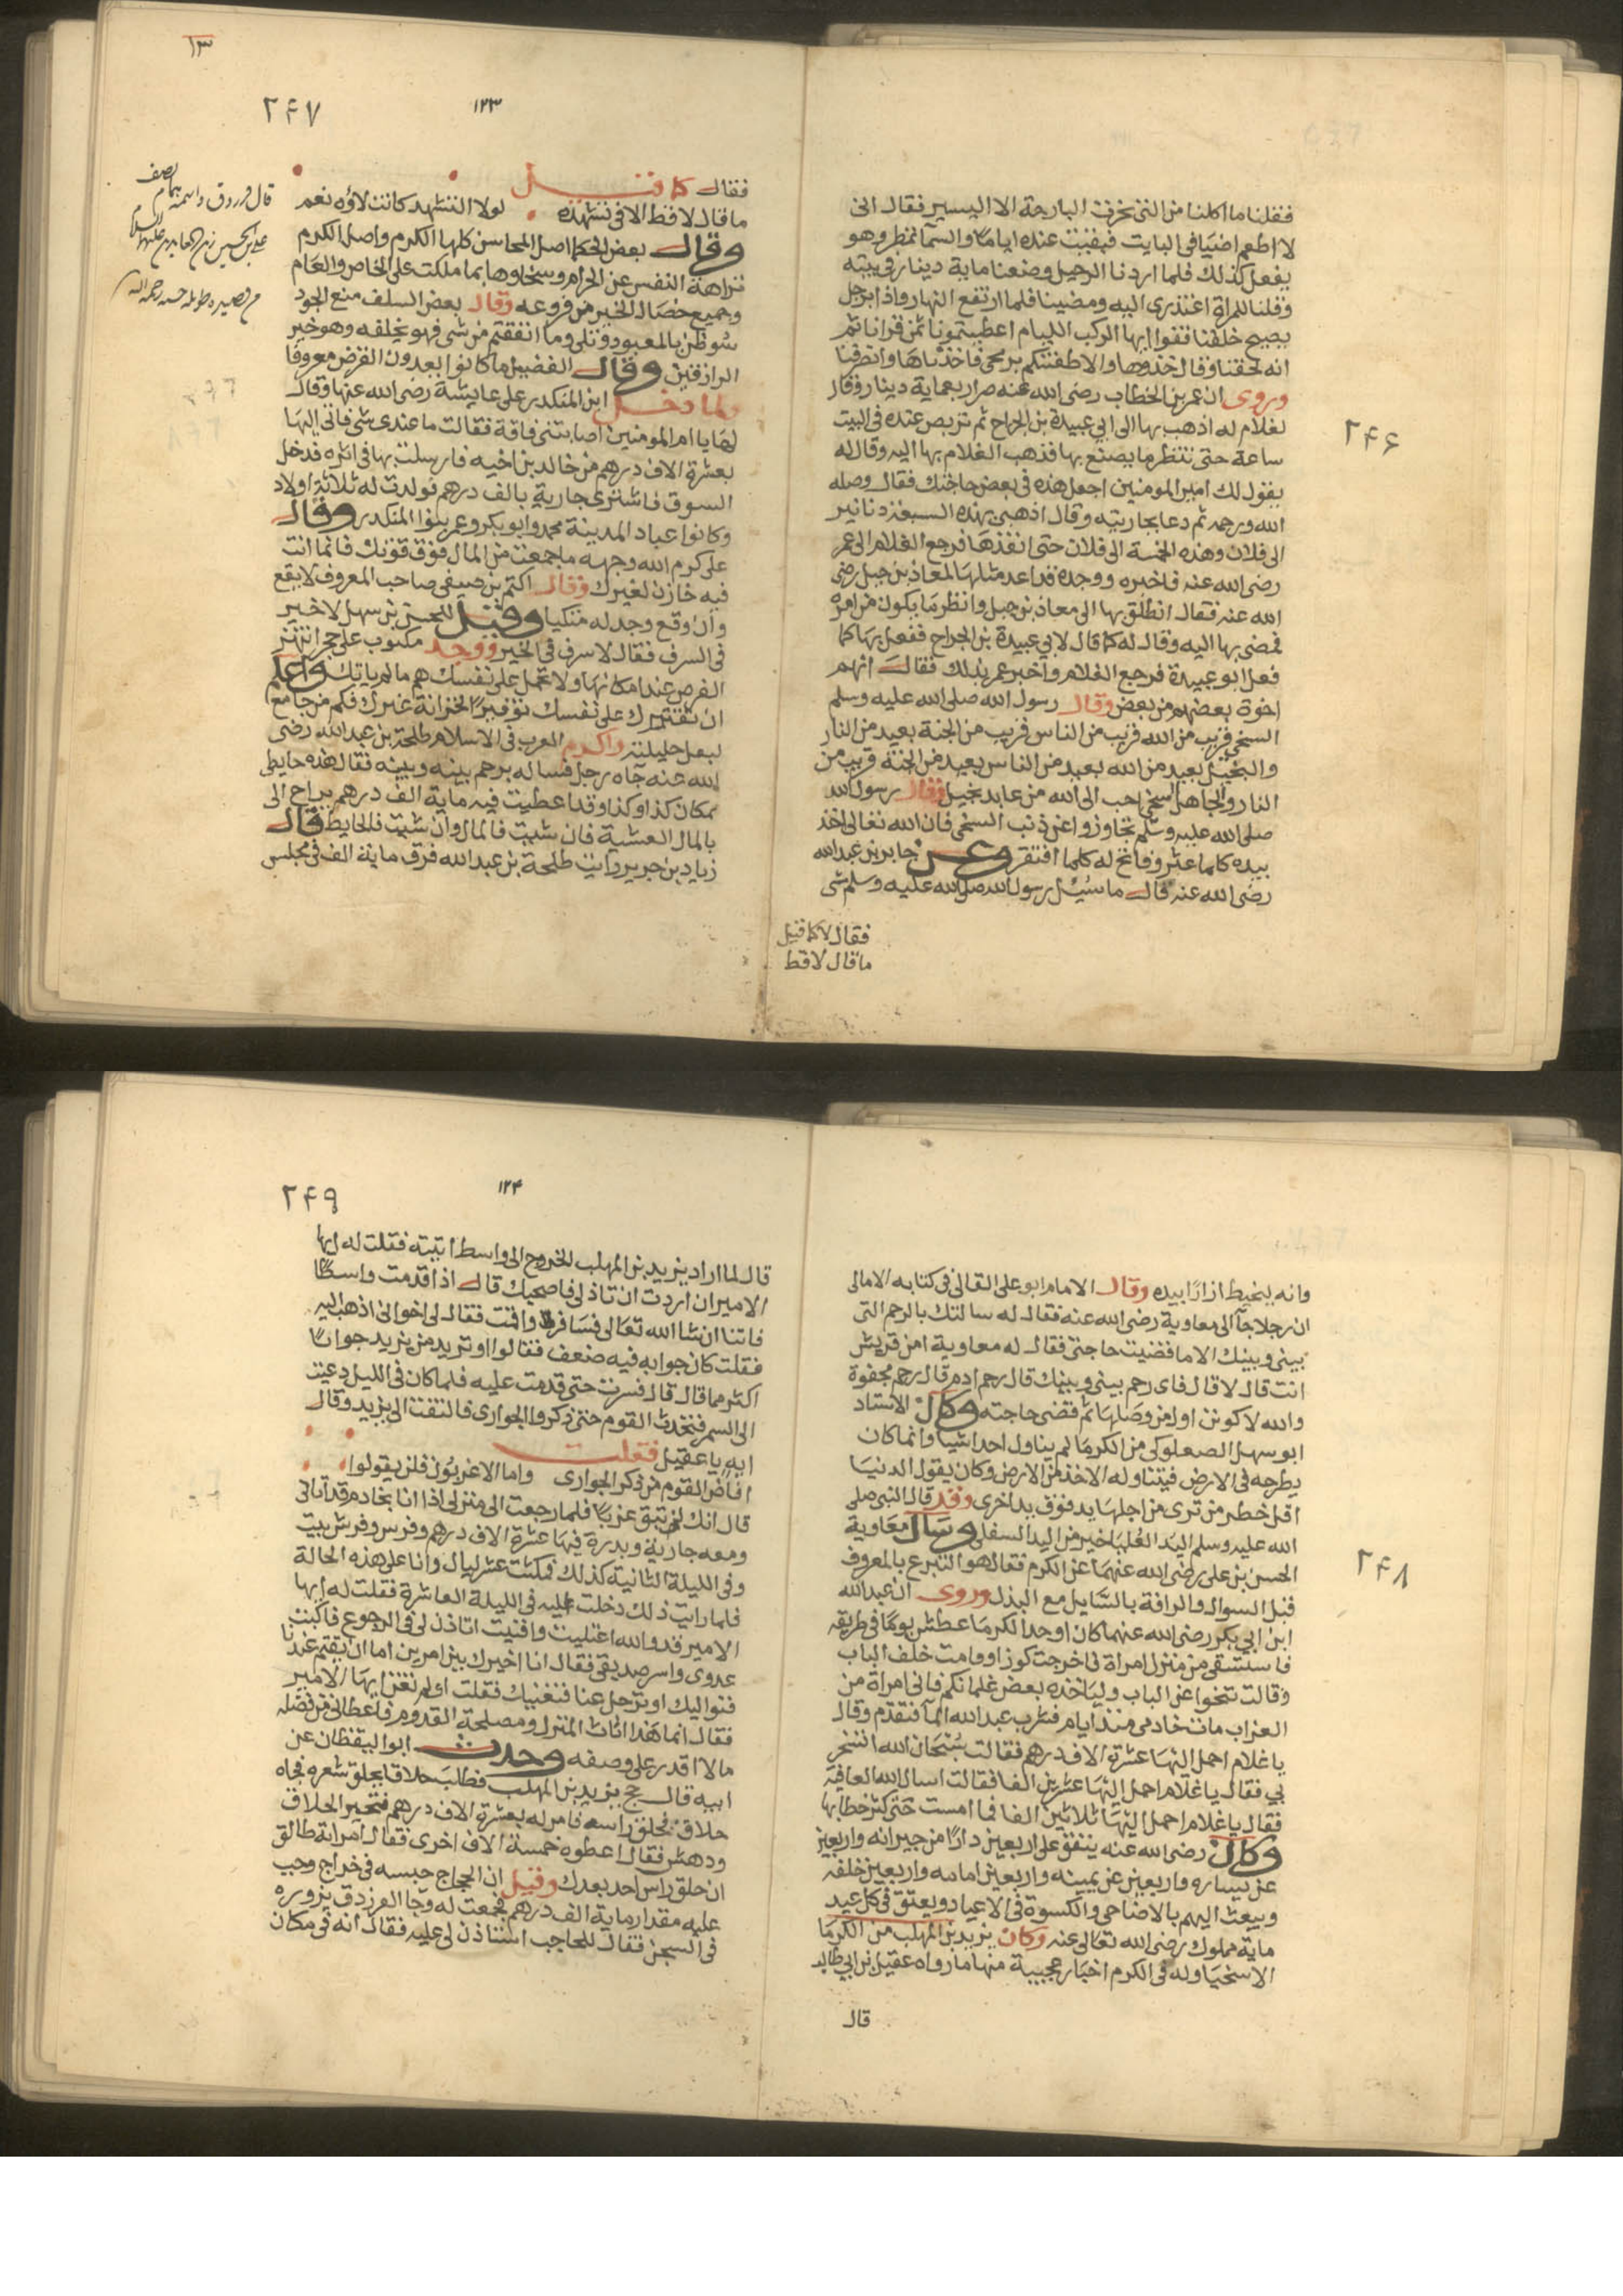 فقلنا ما اكلنا من التى نحرت البارحة الا اليسير فقال انى
لا اطعم اضيافى البايت فبقينا عنده اياما والسما تمطر وهو
يفعل كذلك فلما اردنا الرحيل وضعنا ماية دينار فى بيته
وقلنا للمراة اعتذرى اليه ومضينا فلما ارتفع النهار واذا برجل
يصيح خلفنا قفوا ايها الركب الليام اعطيتمونا ثمن قرانا ثم
انه لحقنا وقال خذوها والا طعنتكم برمحى فاخذناها وانصرفنا
وروى ان عمر بن الخطاب رضى الله عنه صرار بعماية دينار وقال
لغلام له اذهب بها الى ابى عبيدة بن الجراح ثم تربص عنده فى البيت
ساعة حتى تنظر ما يصنع بها فذهب الغلام بها اليه وقال له
يقول لك امير المومنين اجعل هذه فى بعض حاجتك فقال وصله
الله ورحمه ثم دعا بجاريته وقال اذهبى بهذه السبعة دنانير
الى فلان وهذه الخمسة الى فلان حتى انفذها فرجع الغلام الى عمر
رضى الله عنه فاخبره ووجده قد اعد مثلها لمعاذ بن جبل رضى
الله عنه فقال انطلق بها الى معاذ بن جبل وانظر ما يكون من امره
فمضى بها اليه وقال له كما قال لابى عبيدة بن الجراح ففعل بها كما
فعل ابو عبيدة فرجع الغلام واخبر عمر بذلك فقال انهم
اخوة بعضهم من بعض وقال رسول الله صلى الله عليه وسلم
السخى قريب من الله قريب من الناس قريب من الجنة بعيد من النار
والبخيل بعيد من الله بعيد من الناس بعيد من الجنة قريب من
النار والجاهل السخى احب الى الله من عابد بخيل وقال رسول الله
صلى الله عليه وسلم تجاوزوا عن ذنب السخى فان الله تعالى اخذ
بيده كلما عثر وفاتح له كلما افتقر وعن جابر بن عبد الله
رضى الله عنه قال ما سئل رسول الله صلى الله عليه وسلم شى
فقال لا كما قيل
ما قال لا قط
٢۴۶
١٣
٢۴٧
١٢٣
فقال كما قيل
ما قال لا قط الا فى تشهده لولا التشهد كانت لاؤه نعم
وقال بعض الحكما اصل المحاسن كلها الكرم واصل الكرم
نزاهة النفس عن الحرام وسخاوها بما ملكت على الخاص والعام
وجميع خصال الخير من فروعه وقال بعض السلف منع الجود
سو ظن بالمعبود وتلى وما انفقتم من شى فهو يخلفه وهو خير
الرازقين وقال الفضيل ما كانوا يعدون القرض معروفا
ولما دخل ابن المنكدر على عايشة رضى الله عنها وقال
لها يا ام المومنين اصابتنى فاقة فقالت ما عندى شى فاتى اليها
بعشرة الاف درهم من خالد بن اخيه فارسلت بها فى اثره فدخل
السوق فاشترى جارية بالف درهم فولدت له ثلاثة اولاد
وكانوا عباد المدينة محمد وابو بكر وعمر بنوا المنكدر وقال
على كرم الله وجهه ما جمعت من المال فوق قوتك فانما انت
فيه خازن لغيرك وقال اكثم بن صيفى صاحب المعروف لا يقع
وان وقع وجد له متكيا وقيل للحسن بن سهل لا خير
فى السرف فقال لا سرف فى الخير ووجد مكتوب على حجر انتهز
الفرص عند امكانها ولا تحمل على نفسك هم ما لم ياتك واعلم
ان تقتيرك على نفسك توفيرا لخزانة غيرك فكم من جامع
لبعل حليلته واكرم العرب فى الاسلام طلحة بن عبد الله رضى
الله عنه جاه رجل فساله برحم بينه وبينه فقال هذه حايطى
بمكان كذا وكذا وقد اعطيت فيه ماية الف درهم يراح الى
بالمال العشية فان شيت فالمال وان شيت فالحايط قال
زياد بن جرير رايت طلحة بن عبد الله فرق ماية الف فى مجلس
وانه ليخيط ازارا بيده وقال الامام ابو على القالى فى كتابه الامالى
ان رجلا جا الى معاوية رضى الله عنه فقال له سالتك بالرحم التى
بينى وبينك الا ما قضيت حاجتى فقال له معاوية امن قريش
انت قال لا قال فاى رحم بينى وبينك قال رحم ادم قال رحم مجفوة
والله لاكونن اول من وصلها ثم قضى حاجته وكان الاستاد
ابو سهل الصعلوكى من الكرما لم يناول احدا شيا وانما كان
يطرحه فى الارض فيتناوله الاخذ من الارض وكان يقول الدنيا
اقل خطر من ترى من اجلها يد فوق يد اخرى وقد قال النبى صلى
الله عليه وسلم اليد العليا خير من اليد السفلى وسال معاوية
الحسن بن على رضى الله عنهما عن الكرم فقال هو التبرع بالمعروف
قبل السوال والرافة بالسايل مع البذل وروى ان عبد الله
ابن ابى بكر رضى الله عنهما كان اوحد الكرما عطش يوما فى طريقه
فاستسقى من منزل امراة فاخرجت كوزا وقامت خلف الباب
وقالت تنحوا عن الباب وليا خذه بعض غلمانكم فانى امراة من
العزاب مات خادمى منذ ايام فشرب عبد الله الما فتقدم وقال
يا غلام احمل اليها عشرة الاف درهم فقالت سبحان الله اتسخر
بى فقال يا غلام احمل اليها عشرين الفا فقالت اسال الله العافية
فقال يا غلام احمل اليها ثلاثين الفا فما امست حتى كثر خطابها
وكان رضى الله عنه ينفق على اربعين دارا من جيرانه واربعين
عن يساره واربعين عن يمينه واربعين امامه واربعين خلفه
ويبعث اليهم بالاضاحى والكسوة فى الاعياد ويعتق فى كل عيد
ماية مملوك رضى الله تعالى عنه وكان يزيد بن المهلب من الكرما
الاسخيا وله فى الكرم اخبار عجيبة منها ما رواه عقيل بن ابى طالب
قال
٢۴٨
٢۴٩
١٢۴
قال لما اراد يزيد بن المهلب الخروج الى واسط اتيته فقلت له ايها
الامير ان اردت ان تاذ لى فاصحبك قال اذا قدمت واسطا
فاتنا ان شا الله تعالى فسافر واقمت فقال لى اخوانى اذهب اليه
فقلت كان جوابه فيه ضعف فقالوا اوتريد من يزيد جوابا
اكثر مما قال قال فسرت حتى قدمت عليه فلما كان فى الليل دعيت
الى السمر فتحدث القوم حتى ذكروا الجوارى فالتفت الى يزيد وقال
ايه يا عقيل فقلت
افاض القوم من ذكر الجوارى واما الاعزبون فلن يقولوا
قال انك لم تبق عزبا فلما رجعت الى منزلى اذا انا بخادم قد اتانى
ومعه جارية وبدرة فيها عشرة الاف درهم وفرس وفرش بيت
وفى الليلة الثانية كذلك فمكثت عشر ليال وانا على هذه الحالة
فلما رايت ذلك دخلت عليه فى الليلة العاشرة فقلت له ايها
الامير قد والله اغنيت واقنيت اتاذن لى فى الرجوع فاكبت
عدوى واسر صديقى فقال انا اخيرك بين امرين اما ان تقيم عندنا
فنواليك او ترحل عنا فنغنيك فقلت او لم تغننى ايها الامير
فقال انما هذا اثاث المنزل ومصلحة القدوم فاعطانى من فضله
ما لا اقدر على وصفه وحدث ابو اليقظان عن
ابيه قال حج يزيد بن المهلب فطلب حلاقا يحلق شعره فجاه
حلاق فحلق راسه فامر له بعشرة الاف درهم فتحير الحلاق
ودهش فقال اعطوه خمسة الاف اخرى فقال امراته طالق
ان حلق راس احد بعدك وقيل ان الحجاج حبسه فى خراج وجب
عليه مقدار ماية الف درهم فجمعت له وجا الفرزدق يزوره
فى السجن فقال للحاجب استاذن لى عليه فقال انه فى مكان